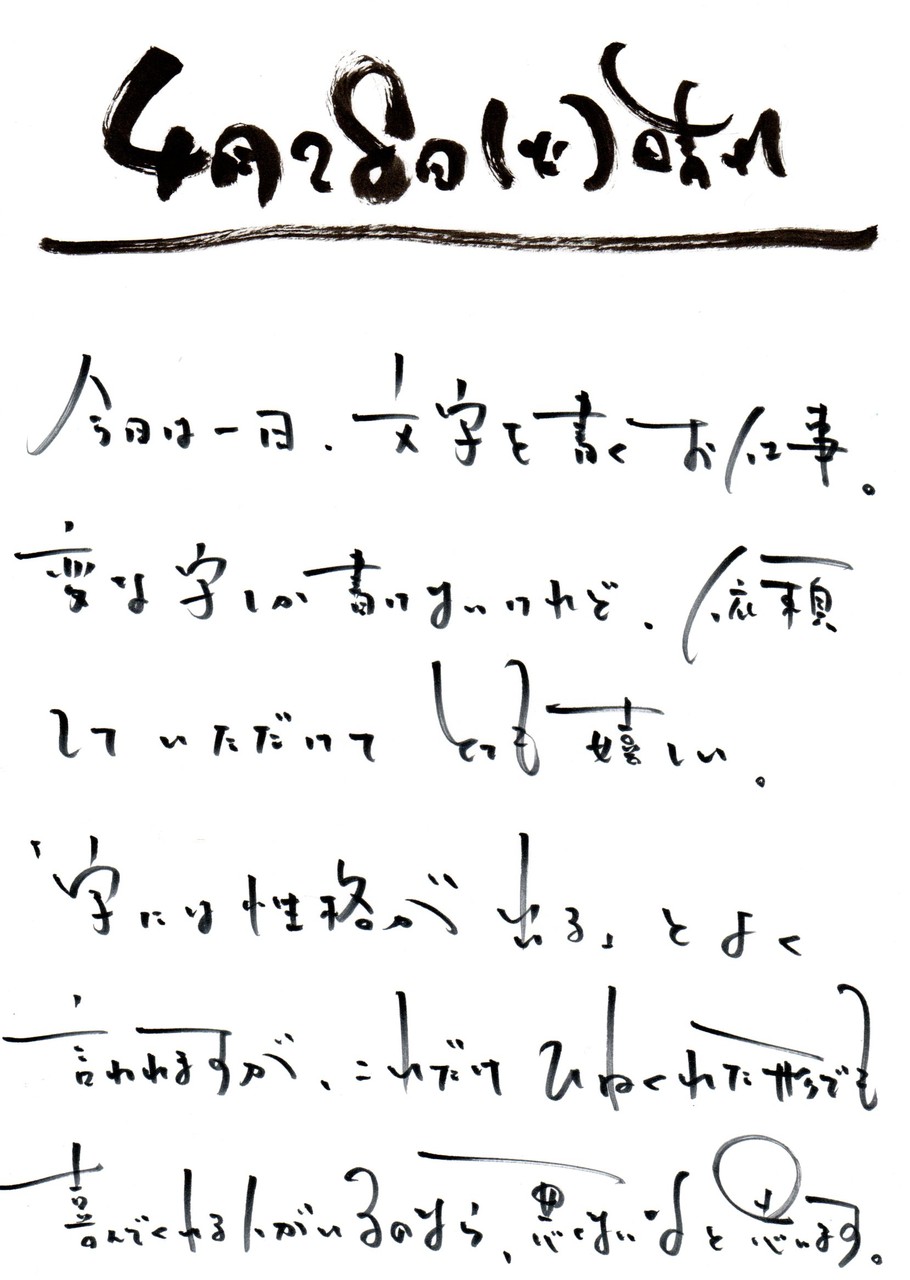 4月28日(火)晴れ
今日は一日、文字を書くお仕事。
変な字しか書けないけれど、依頼
していただけて とても嬉しい。
「字には性格が 出る」とよく
言われますが、これだけ ひねくれた形でも
喜んでくれる人がいるのなら、悪くないなと思います。